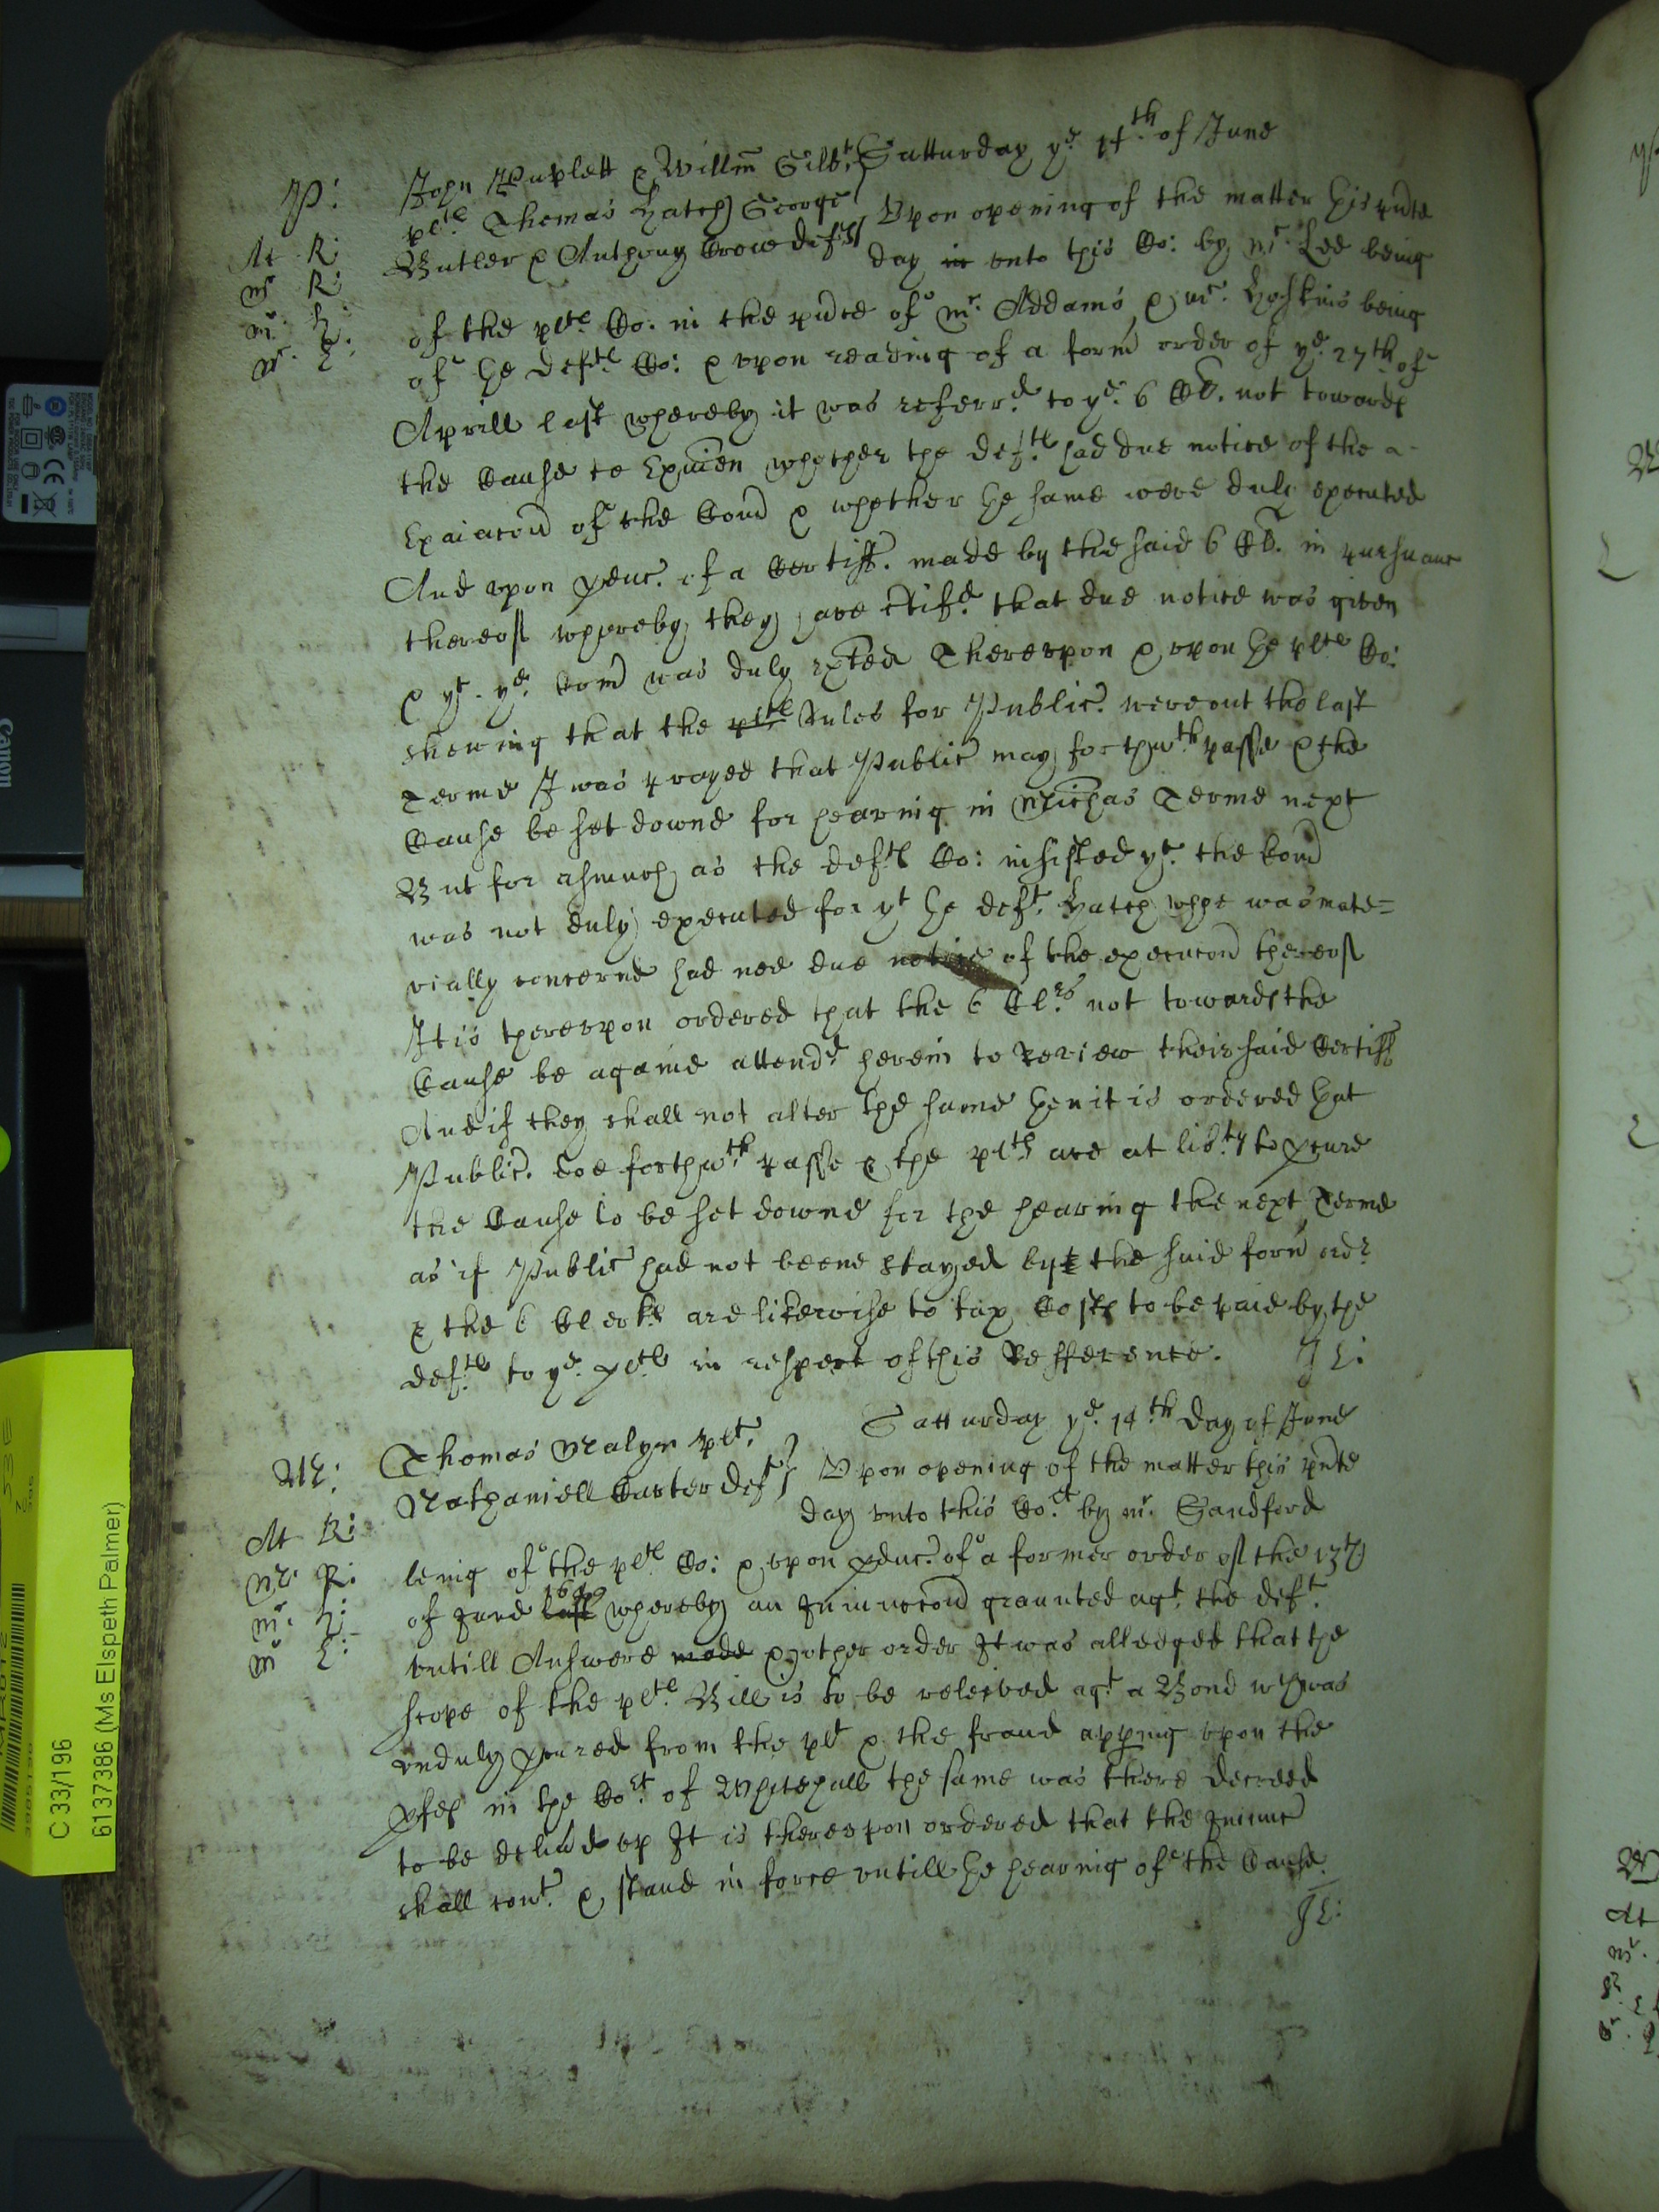 P:
At R:
mr R:
mr. h:
mr. L:
John Puplett & Willm Gilbt
plts Thomas Hatch George
Butler & Anthony Crow defts
Satturday ye 14th of June
Upon opening of the matter this pnte
day in unto this Co: by mr. Lee being
of the plts Co. in the pnce of mr. Addams & mr. Hoskins being
of the defts Co: & upon reading of a form order of ye 27th of
Aprill last whereby it was referrd to ye 6 Cl. not towards
the Cause to Exaien whether the defts had due notice of the
Exaiacon of the Comd & whether the same were duly executed
And upon pduc. of a Certiff. made by the said 6 Cl. in pursuanc
thereof whereby they have ctifd that due notice was given
& yt ye Comd was duly exted Thereupon & upon the plts Co:
shewing that the plts Rules for Public. were out the last
Terme It was prayed that Public may forthwth passe & the
Cause be set downe for hearing in Michas Terme next
But for asmuch as the defts Co: insisted yt the Comd
was not duly executed for yt the deft. Hatch whoe was mate=
rially concerned had noe due notice of the execucon thereof
It is thereupon ordered that the 6 Clrs not towards the
Cause be againe attendd herein to Review their said Certiff
And if they shall not alter the same then it is ordered that
Public. doe forthwth passe & the plts are at libty to pcure
the Cause to be set downe for the hearing the next Terme
as if Public had not beene stayed by the said form ordr
& the 6 Clerks are likewise to tax Costs to be paid by the
defts to ye plts in respect of this Refference. JL:
M:
At R:
mr R:
mr. h:
mr L:
Thomas Malyn plt.
Nathaniell Carter deft
Satturday ye 14th day of June
Upon opening of the matter this pnte
day unto this Cort by mr. Sandford
being of the plts Co: & upon pduc. of a former order of the 13th
of June last 1649 whereby an Iniuncon graunted agt the deft
untill Answere made & other order It was alledged that the
scope of the plts Bill is to be releived agt a Bond wch was
unduly pcured from the plt & the fraud apping upon the
pfes in the Cort of Whitehall the same was there decreed
to be delivd up It is thereupon ordered that the Iniunc
shall cont. & stand in force untill the hearing of the Cause.
JL:
C 33/196
61137386 (Ms Elspeth Palmer)
Canon